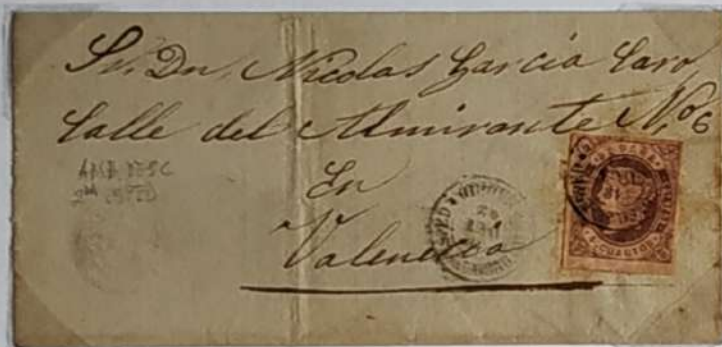 Sr. Dn. Nicolas Garcia Caro,
Calle del Almirante No. 6
En
Valencia
CUARTOS